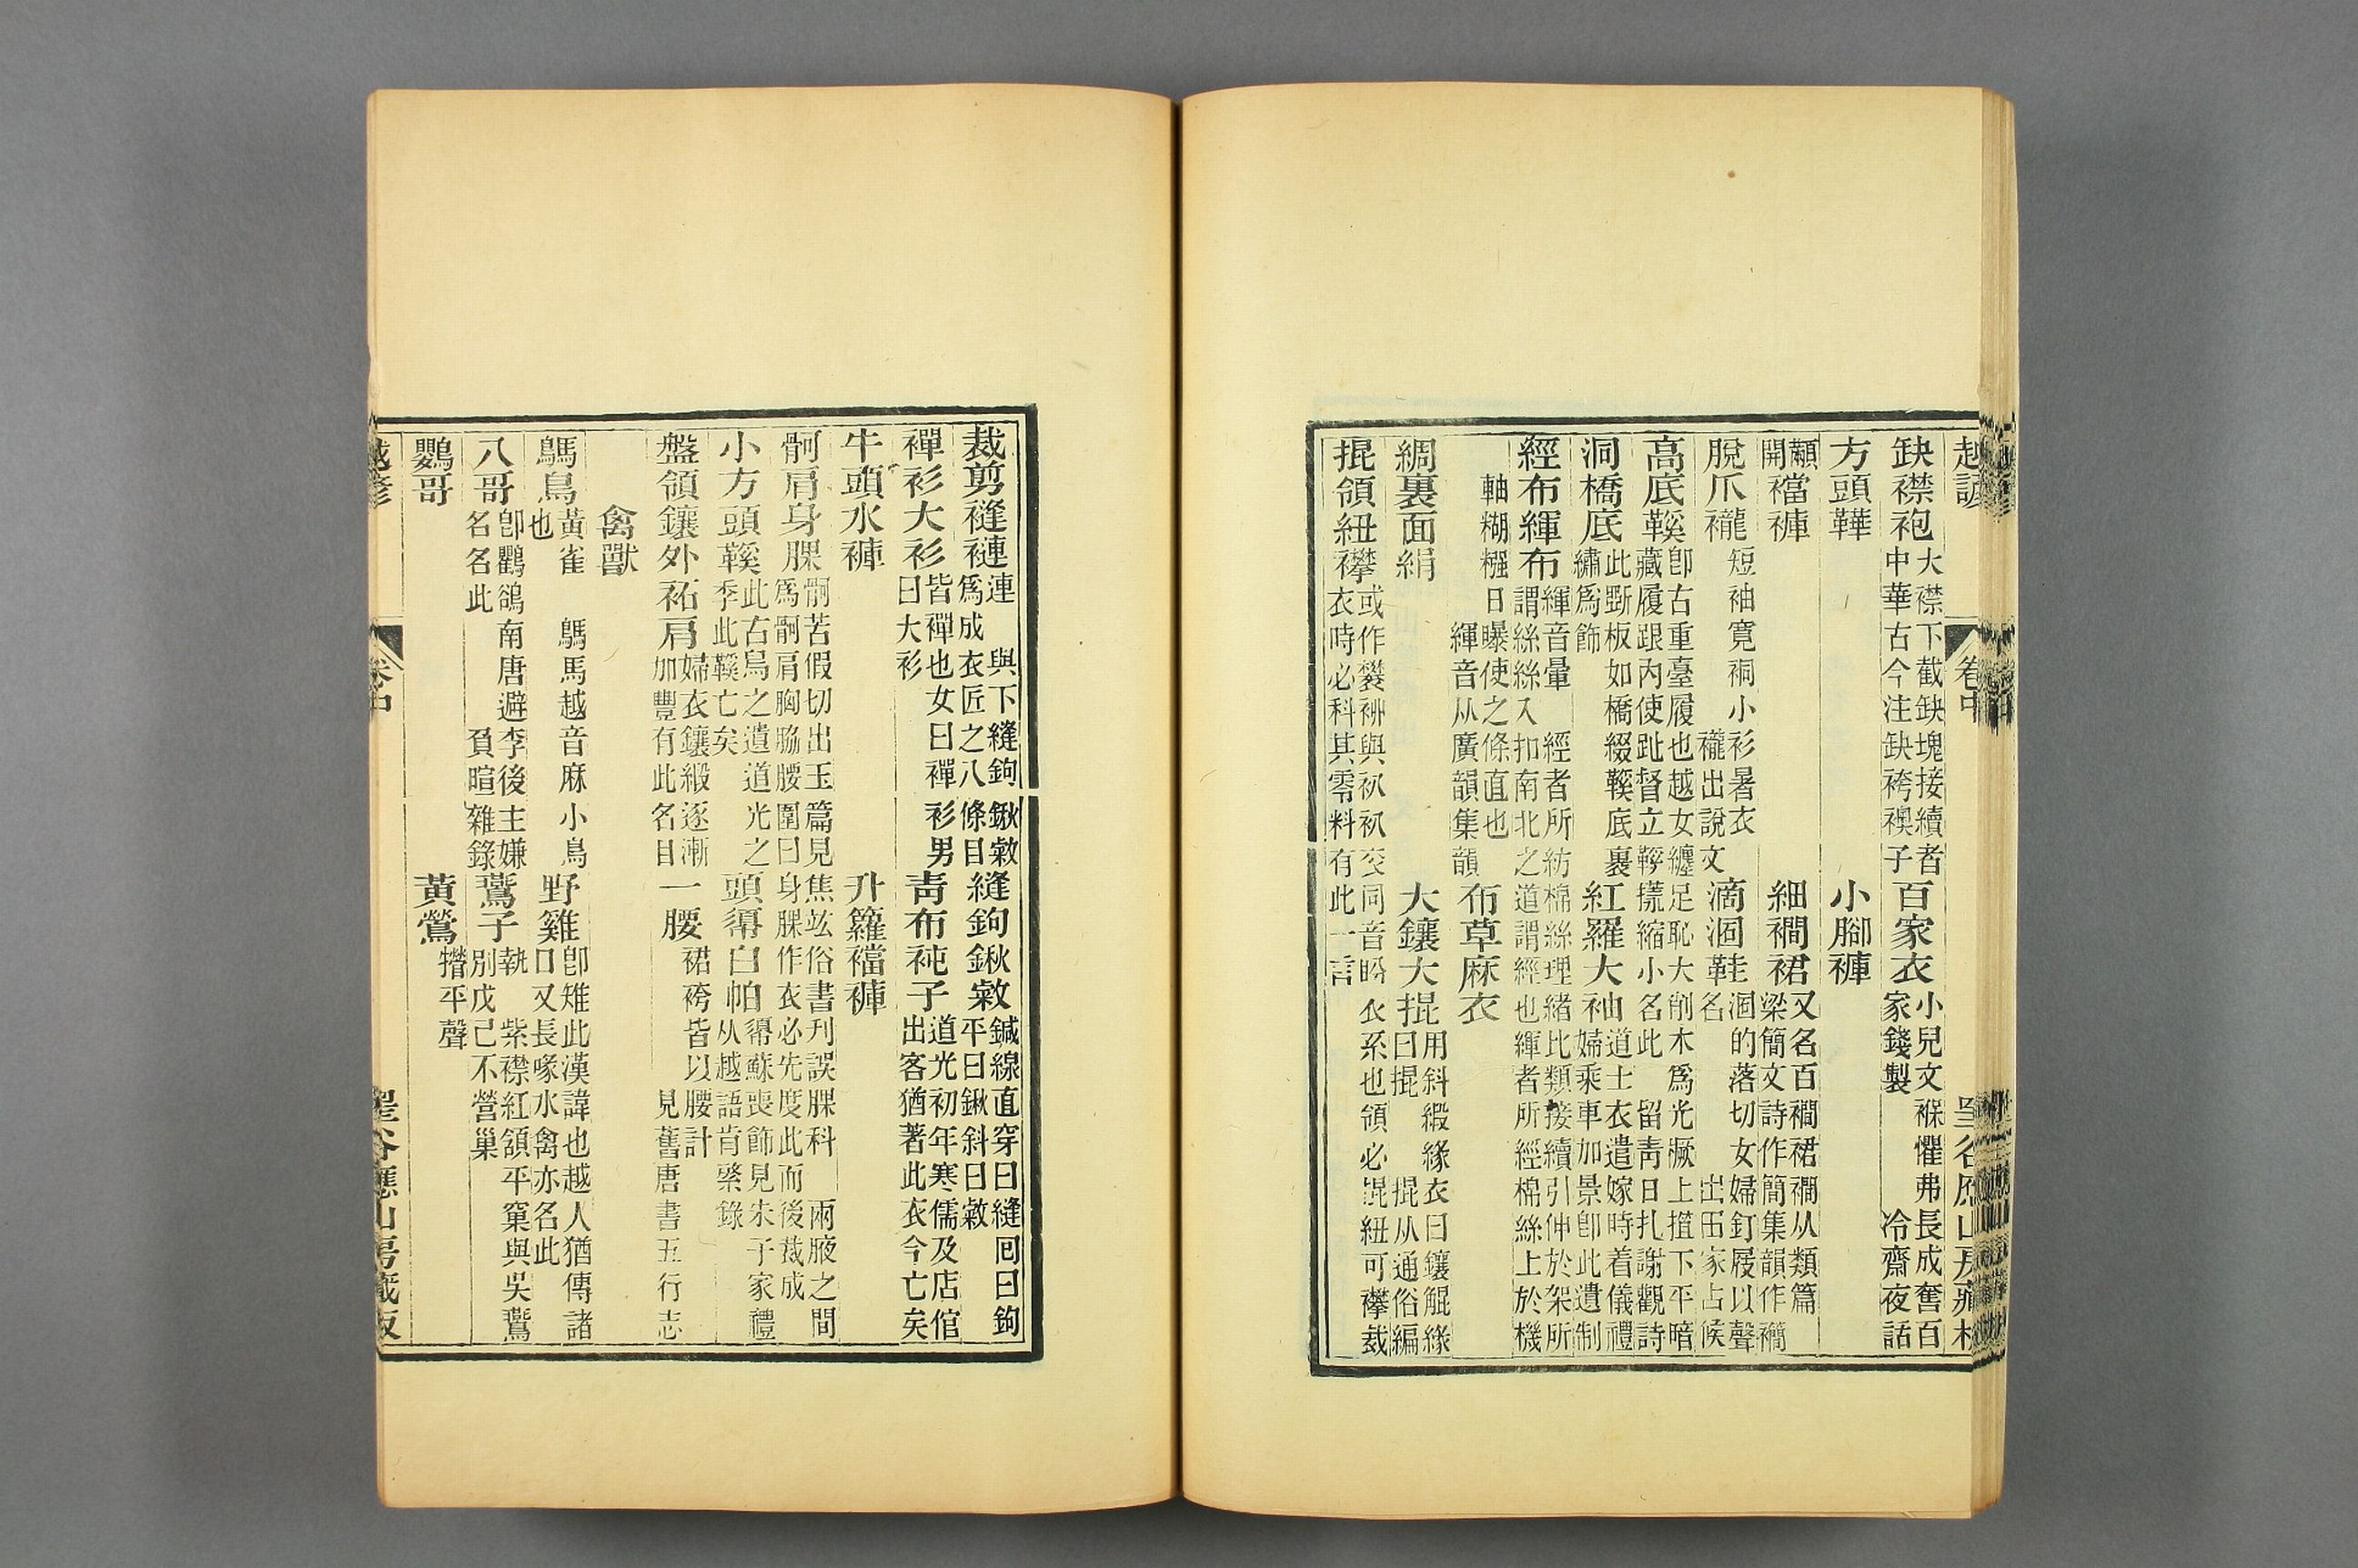 越諺 卷中
缺襟袍 大襟下截缺塊接續者
中華古今注缺袴襖子
百家衣 小兒文褓懼弗長成奮百
家錢製 冷齋夜話
方頭鞾 小腳褲
開襠褲
細襇裙 又名百襇裙襇从類篇
梁簡文詩作簡集韻作襉
脫爪襱 短袖寬裥小衫暑衣
襱出說文
滴涸鞋 涸的落切女婦釘屐以聲
名 出田家占候
高底鞵 卽古重臺履也越女纏足恥大削木爲光橛上揎下平暗
藏履跟內使趾督立縮小名此 留靑日扎謝觀詩
洞橋底 此斲板如橋綴鞵底裹
繡爲飾
紅羅大袖 道士衣遣嫁時着儀禮
婦乘車加景卽此遺制
經布緷布 緷音暈 經者所紡棉絲理緒比類接續引伸於架所
謂絲絲入扣南北之道謂經也緷者所經棉絲上於機
軸糊糨日曝使之條直也
緷音从廣韻集韻
布草麻衣
綢裏面絹 大鑲大掍 用斜緞緣衣曰鑲緄緣
曰掍 掍从通俗編
掍領紐襻 或作與同音 衣系也領必掍紐可襻裁
衣時必科其零料有此一言
裁剪縫褳 連 與下縫鉤鍬敹
爲成衣匠之八條目
縫鉤鍬敹 鍼線直穿曰縫回曰鉤
平曰鍬斜曰敹
襌衫大衫 皆襌也女曰襌衫男
曰大衫
靑布袘子 道光初年寒儒及店倌
出客猶著此衣今亡矣
牛頭水褲 升籮襠褲
䯊肩身腂 䯊苦假切出玉篇見焦竑俗書刋誤腂科 兩腋之間
爲䯊肩胸脇腰圍曰身腂作衣必先度此而後裁成
小方頭鞵 此古舄之遺道光之
季此鞵亡矣
頭䙜白帕 䙜蘇喪飾見朱子家禮
从越語肯綮錄
盤領鑲外袥肩 婦衣鑲緞逐漸
加豐有此名目
一腰 裙袴皆以腰計
見舊唐書五行志
禽獸
鷌鳥 黃雀 鷌馬越音麻小鳥
也
野雞 卽雉此漢諱也越人猶傳諸
口又長喙水禽亦名此
八哥 卽鸜鵒南唐避李後主嫌
名名此 負暄雜錄
鷰子 執 紫襟紅頷平窠與吳鷰
別戊己不營巢
鸚哥 黃鶯 㹙平聲
越諺 卷中